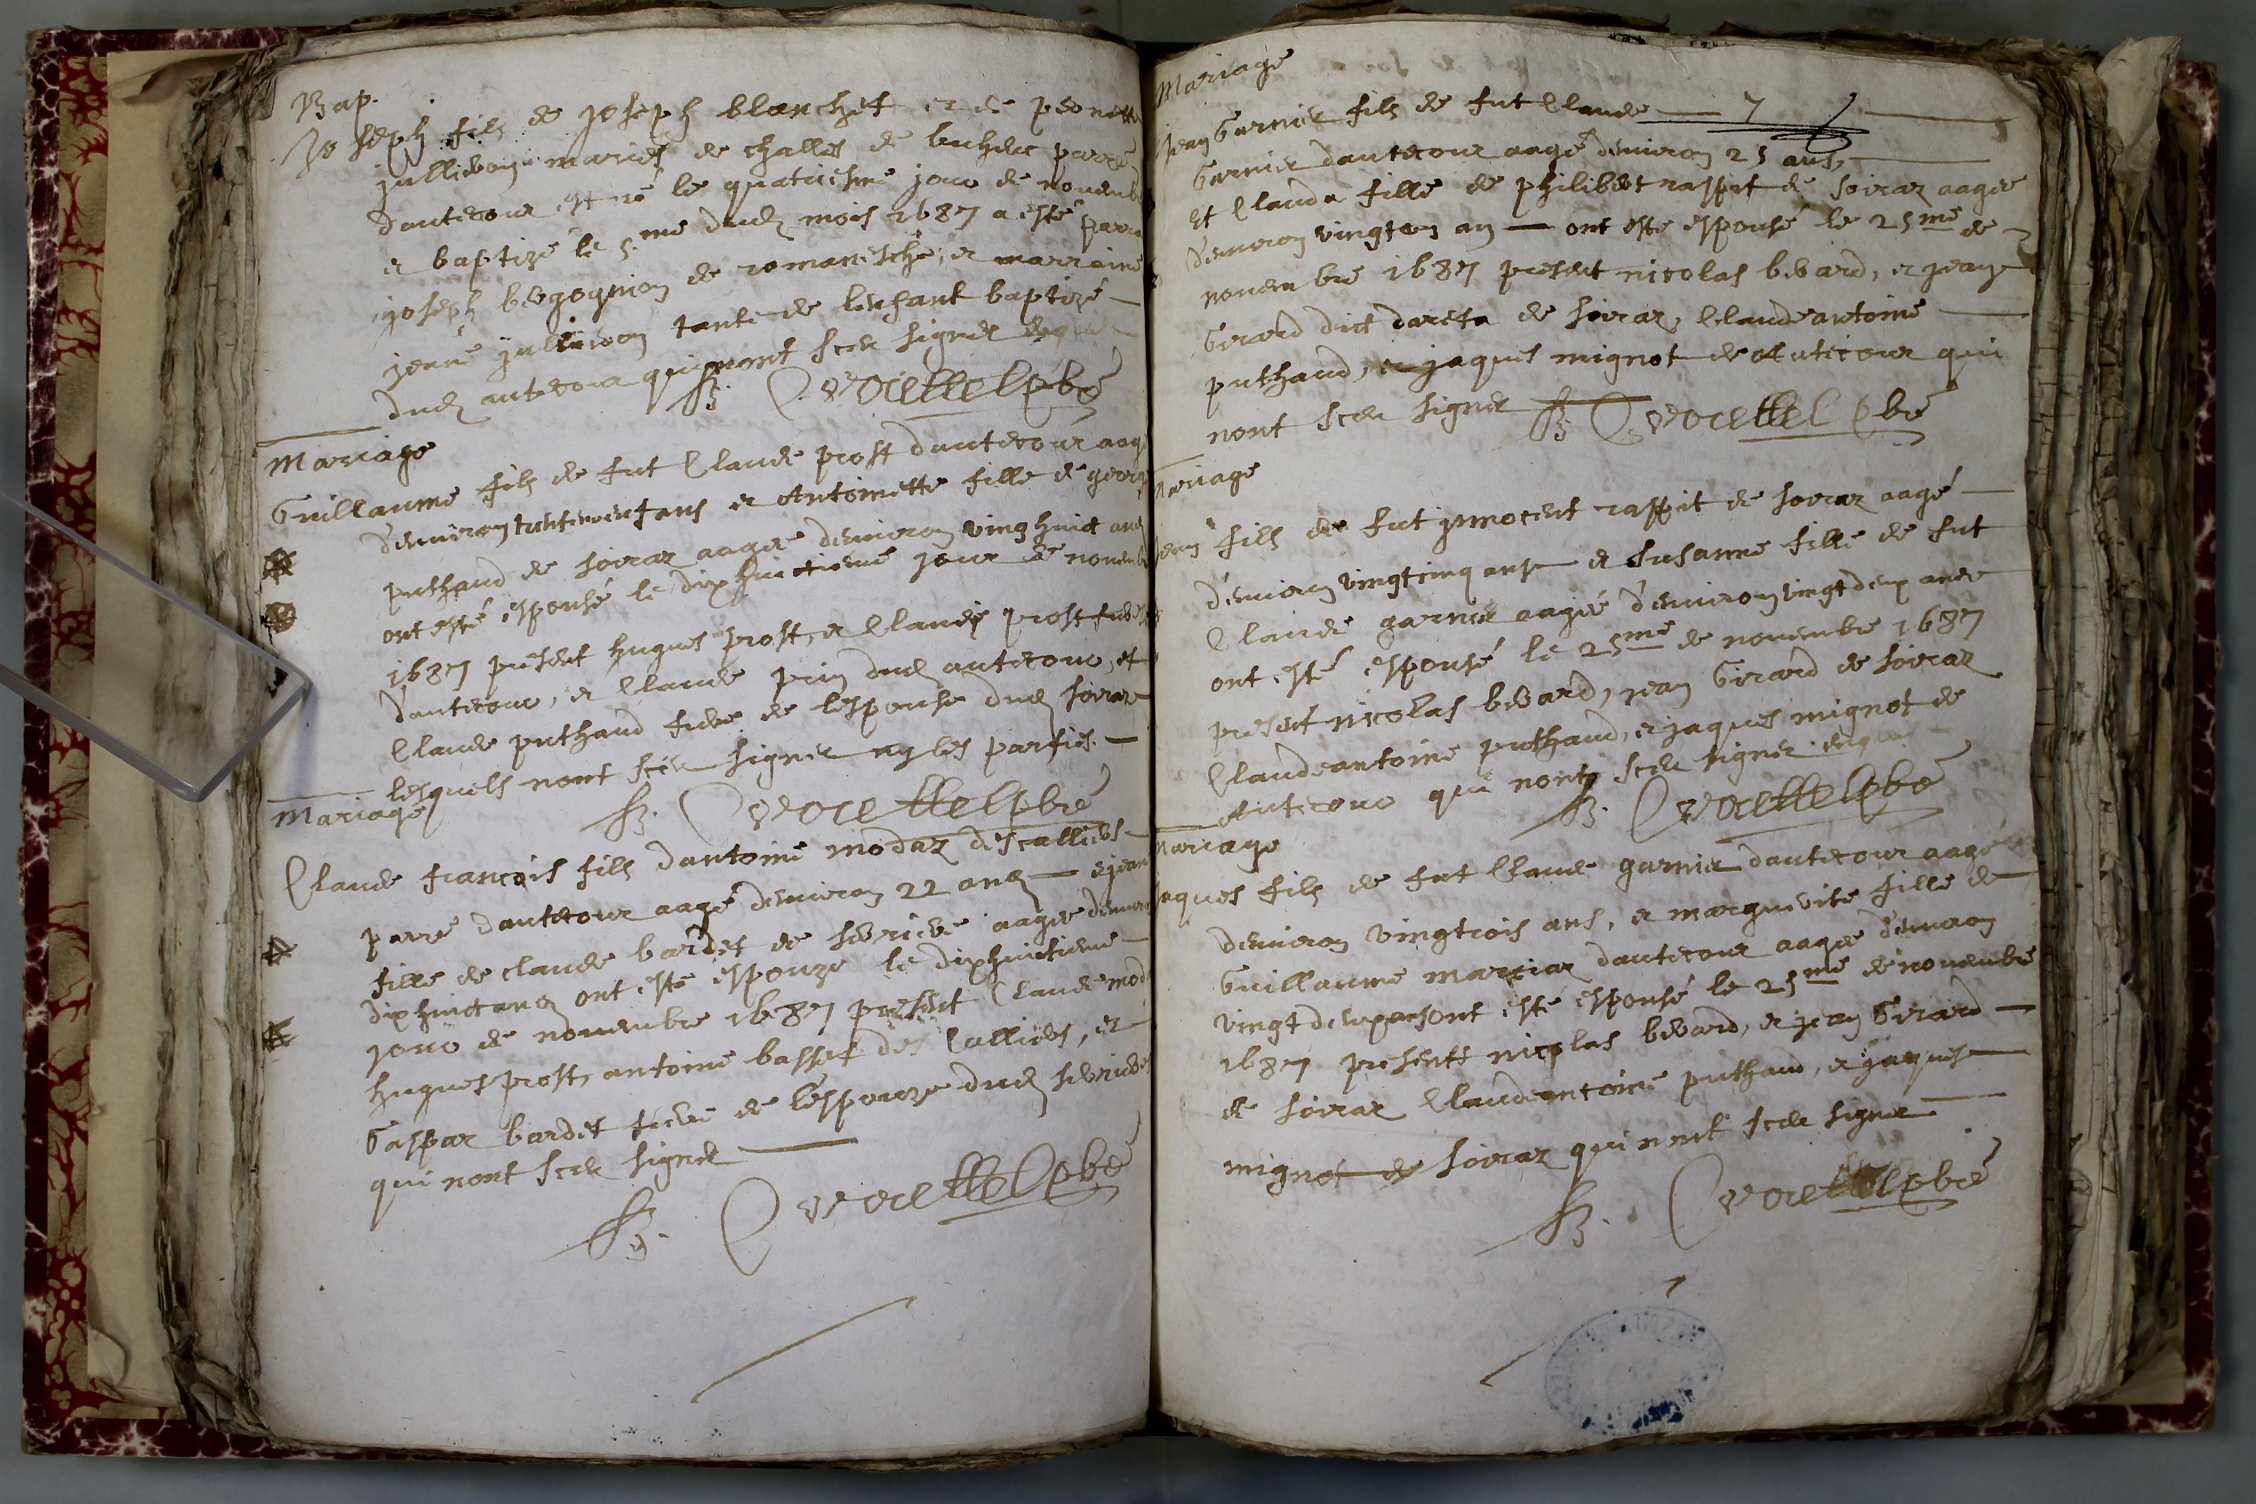 Bap.
Joseph fils de joseph blanchet et de peonette
jullieron maries de challes de buhenc parre
dantecour est né le quatriesme jour de novemb
et baptizé le 5.me dud mois 1687 a esté parra
joseph bergognion de romanesche, et marraine
jeane jullieron tante de lenfant baptizé
dud antecour qui nont sceu signer
Mariage
Guillaume fils de fut Claude prost dantecour aagé
denviron et Antoinette fille de george
puthaud de soiraz aagee denviron ving huict ans
ont esté espousé le dixhuictieme jour de novemb
1687 present hugues prost, et Claude prost
dantecour, et Claude prin dud antecour, et
Claude puthaud frere de lespouse dud soiraz
lesquels nont sceu signer ny les parties.
Mariage
Claude francois fils dantoine modaz des callieres
parre dantecour aagé denviron 22 ans et jean
fille de claude bardet de serriere aagee denviro
dixhuict ans ont esté espouze le dixhuictieme
jour de novembre 1687 present Claude mod
hugues prost, antoine basset des Callieres, et
Gaspar bardet frere de lespouze dud serriere
qui nont sceu signer
Mariage
Jean Garnier fils de fut Claude
Garnier dantecour aagé denviron 25 ans,
et Clauda fille de philibert raspit de soiraz aagee
denviron vingt an ont esté espousé le 25me de
novembre 1687 present nicolas berard, et jean
Girard dict dareta de soiraz, Claudeantoine
puthaud, et jaques mignot de Antecour qui
nont sceu signer
Mariage
jean fils de fut jnnocent raspit de soiraz aagé
denviron vingtcinq ans et susanne fille de fut
Claude garnier aagée denviron vingtdeux ans
ont esté espousé le 25me de novembre 1687
present nicolas berard, jean Girard de soiraz
Claudeantoine puthaud, et jaques mignot de
Antecour qui nont sceu signer
Mariage
jaques fils de fut Claude garnier dantecour aagé
denviron vingtrois ans, et marguerite fille de
Guillaume marciaz dantecour aagee denviron
vingt deux ans ont esté espousé le 25me de novembre
1687 presents nicolas berard, et jean Girard
de soiraz Claudeantoine puthaud, et jaques
mignot de soiraz qui nont sceu signer